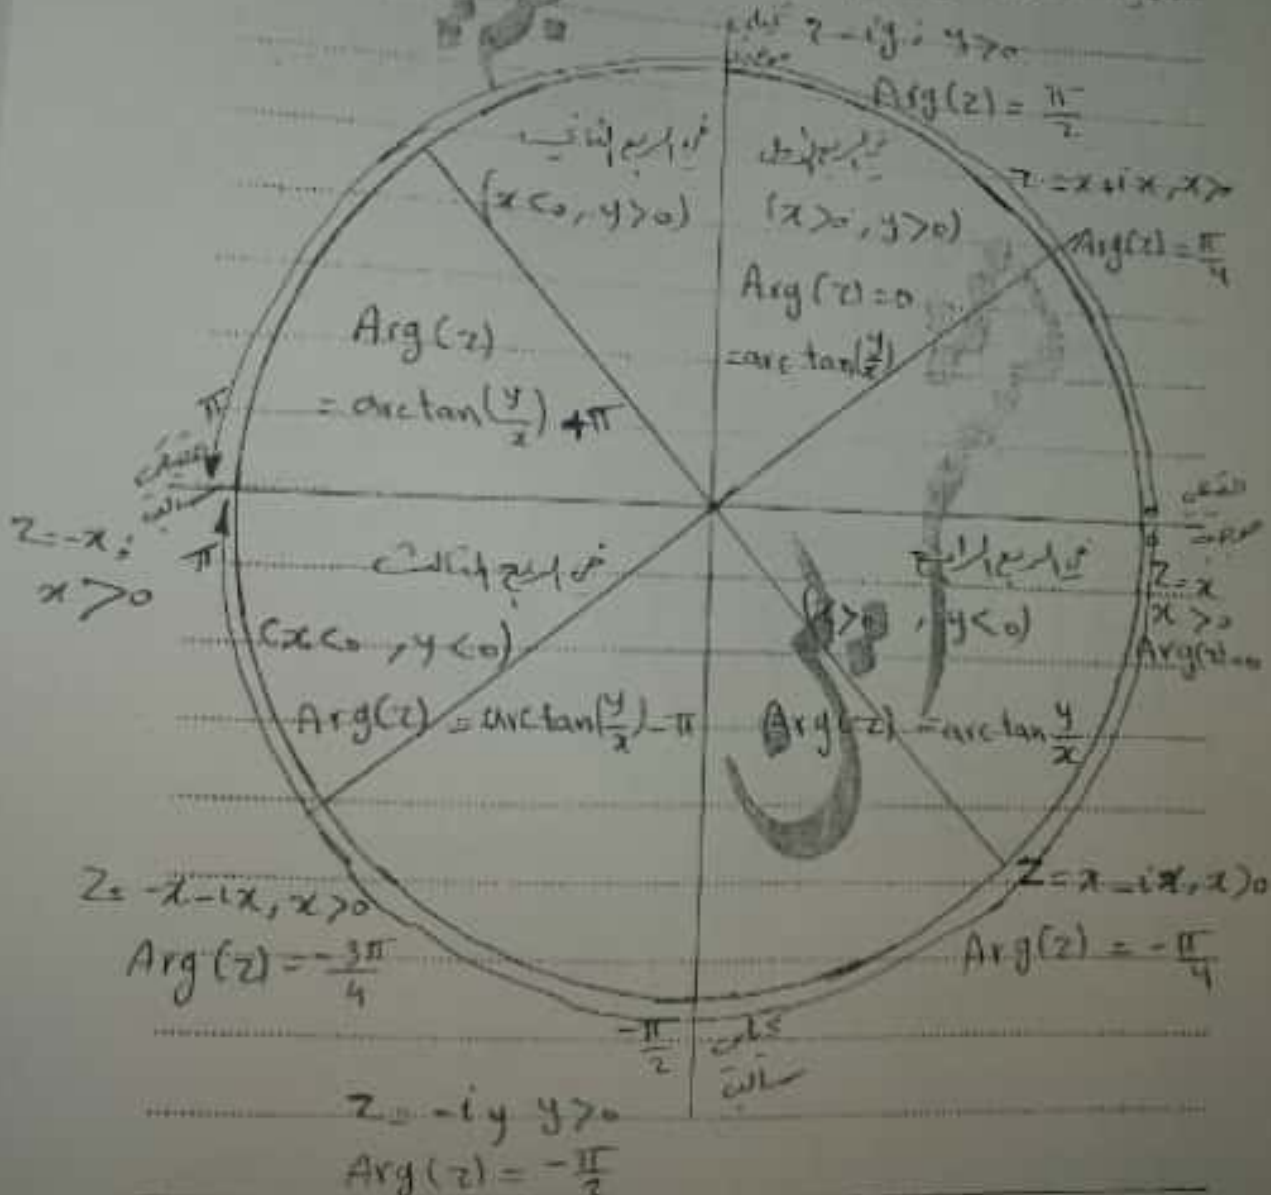 z = iy ; y>0
Arg(z) = π/2
z = x+ix, x>0
Arg(z) = π/4
في الربع الثاني
(x<0, y>0)
Arg(z)
= arc tan(y/x) +π
في الربع الأول
(x>0, y>0)
Arg(z) = θ
= arc tan(y/x)
π
سالب
z = -x ;
x>0
π
z = x
x>0
Arg(z) = 0
في الربع الثالث
(x<0, y<0)
Arg(z) = arc tan(y/x) - π
في الربع الرابع
(x>0, y<0)
Arg(z) = arc tan y/x
z = -x-ix, x>0
Arg(z) = -3π/4
z = x-ix, x>0
Arg(z) = -π/4
-π/2
سالب
z = -iy y>0
Arg(z) = -π/2